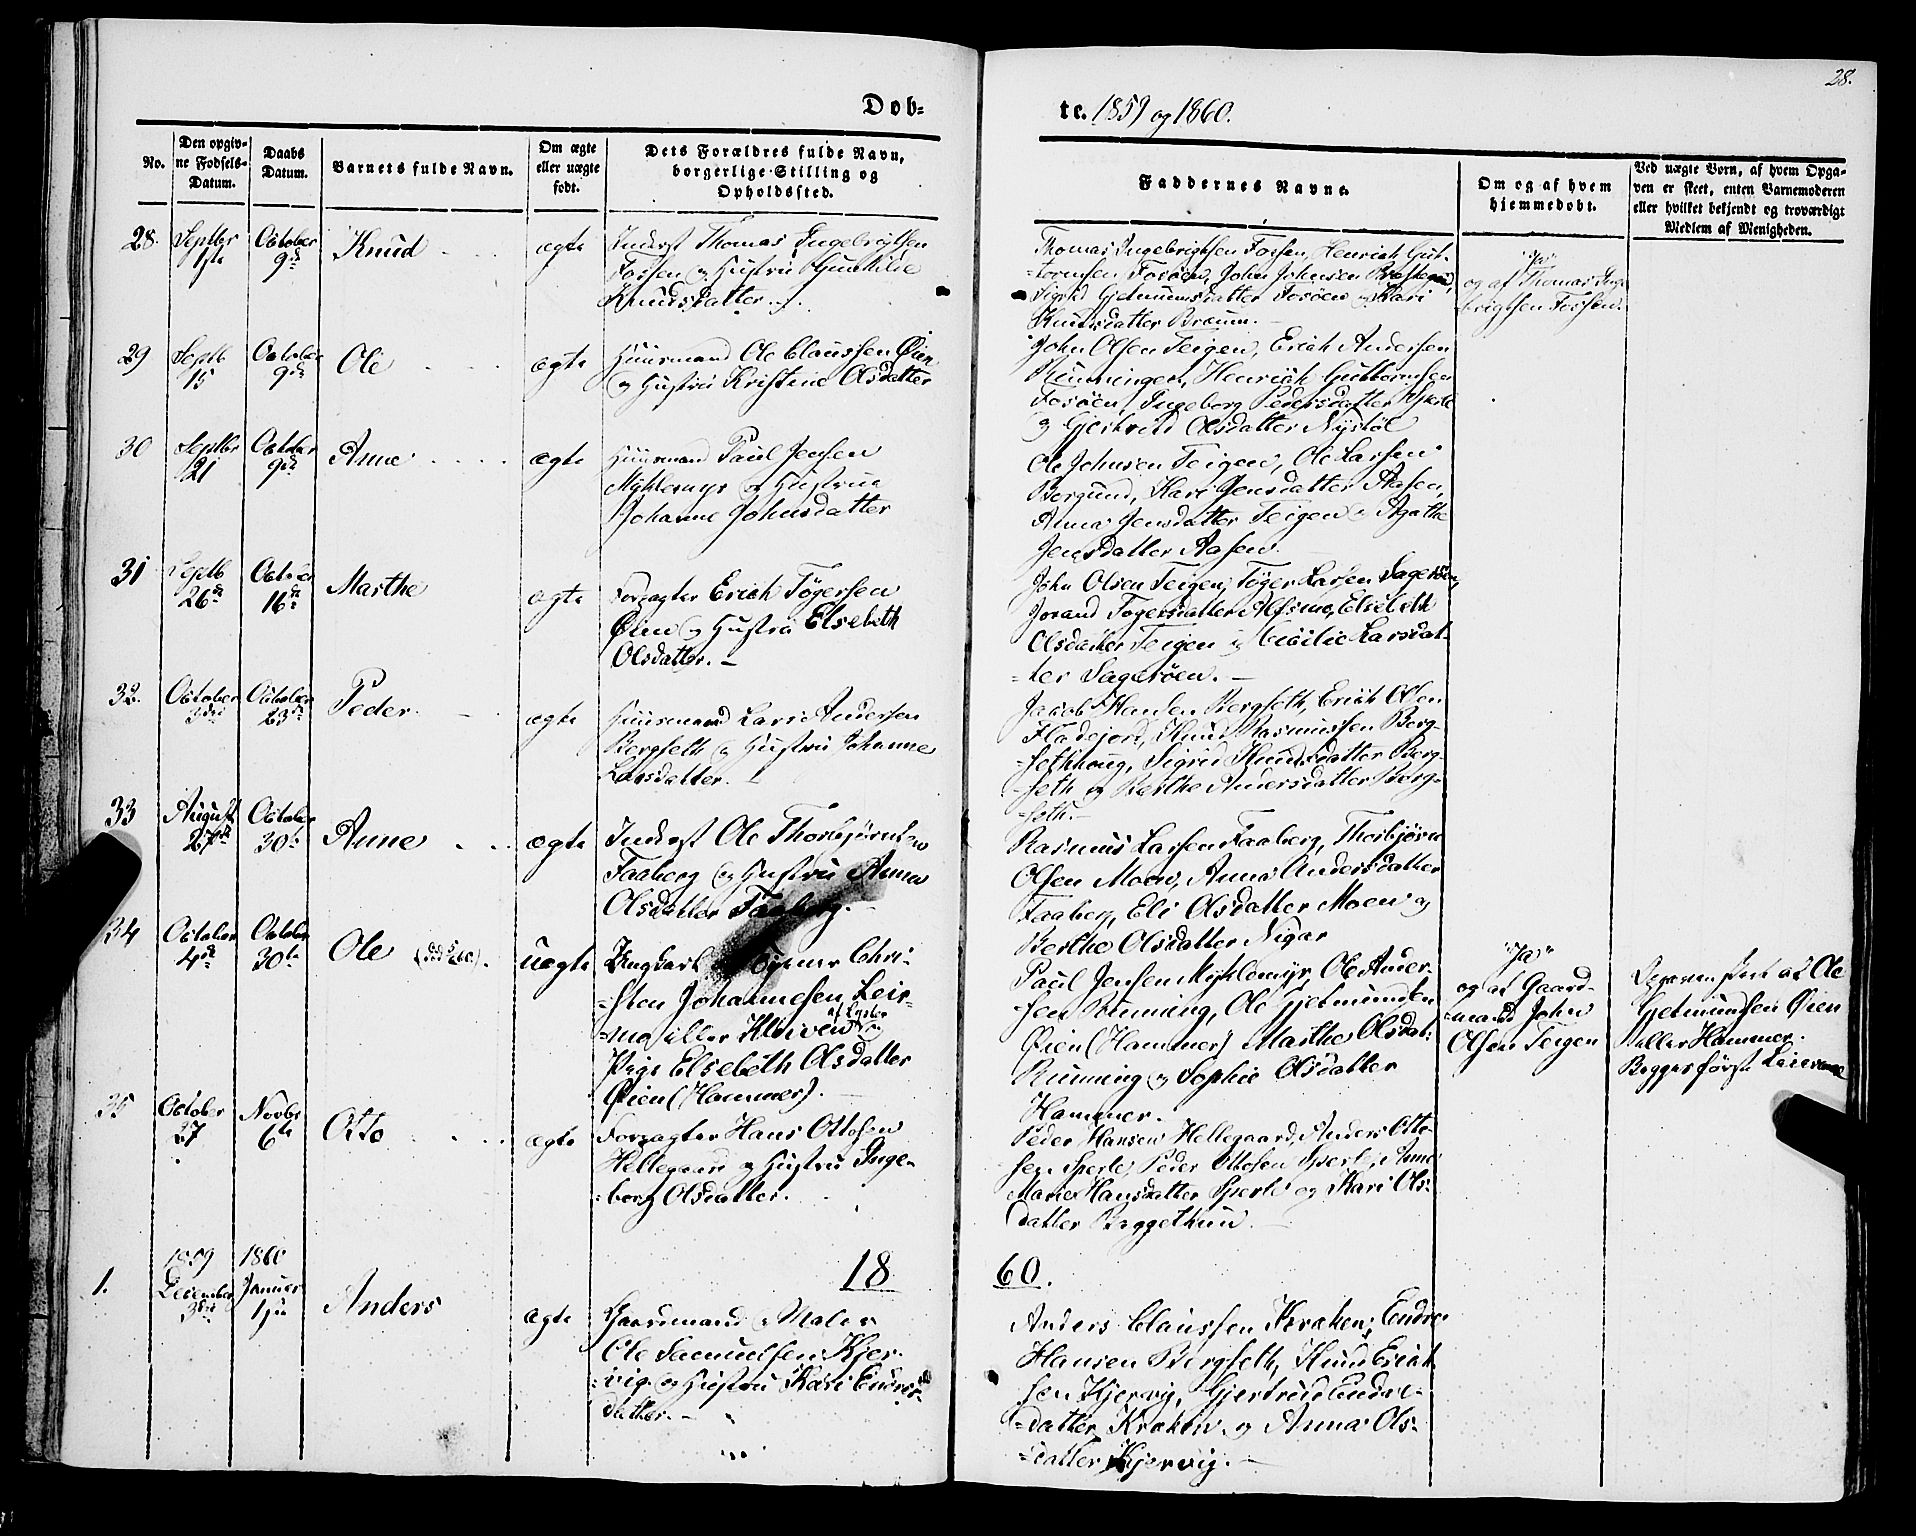 28.
Døb-
te. 1859 og 1860.
No.
Den opgiv-
ne Fødsels-
Datum.
Daabs
Datum.
Barnets fulde Navn.
Om ægte
eller uægte
født.
Dets Forældres fulde Navn,
borgerlige Stilling og
Opholdssted.
Faddernes Navne.
Om og af hvem
hjemmedøbt.
Ved uægte Børn, af hvem Opga-
ven er skeet, enten Barnemoderen
eller hvilket bekjendt og troværdigt
Medlem af Menigheden.
28. Septbr 1ste October 9de Knud ægte
Inderst Thomas Ingebrigtsen
Fossen og Hustru Gunhilde
Knudsdatter.
Thomas Ingebrigtsen Fossen, Henrich Gut-
=tormsen Fosøen, John Johnsen
Sigrid Gjetmunnsdatter Fosøen og Kari
Knudsdatter
"Ja"
og af Thomas Inge
brigtsen Fossen.
29 Septb 15 October 9de Ole ægte
Huusmand Ole Claussen Øien
og Hustru Kristine Olsdatter
John Olsen Teigen, Erich Andersen
Rünningen, Henrich Guttormsen
Fosøen, Ingeborg Pedersdatter Sperle
og Gjertrud Olsdatter Nystøl
30 Septbr 21 October 9de Anne ægte
Huusmand Paul Jensen
Myklemyr og Hustrue
Johanne Johnsdatter
Ole Johnsen Teigen, Ole Larsen
Borgund, Kari Jensdatter Aasen,
Anna Jensdatter Teigen og Agathe
Jensdatter Aasen.
31 Septb 26de October 16de Marthe ægte
Forpagter Erich Tøgersen
Øien og Hustru Elsebeth
Olsdatter.
John Olsen Teigen, Tøger Larsen Sagerøen,
Jorand Tøgersdatter Alsmo, Elsebeth
Olsdatter Teigen og Cicilie Larsdat-
=ter Sagerøen.
32. October 3die October 23de Peder ægte
Huusmand Lars Andersen
Bergseth og Hustru Johanne
Larsdatter.
Jacob Hansen Bergseth, Erich Olsen
Fladejord, Knud Rasmussen Berg-
=sethhoug, Sigrid Knudsdatter Berg-
=seth og Berthe Andersdatter Berg-
=seth.
33 August 27de October 30te Anne ægte
Inderst Ole Thorbjørnsen
Faaberg og Hustru Anna
Olsdatter Faaberg.
Rasmus Larsen Faaberg, Thorbjørn
Olsen Moen, Anna Andersdatter
Faaberg, Eli Olsdatter Moen og
Berthe Olsdatter Nigar
34 October 4de October 30te Ole uægte
Ungkarl Chri-
=sten Johannesen Leir-
=mo eller Kleiven af Lyster og
Pige Elsebeth Olsdatter
Øien (Hammer).
Paul Jensen Myklemyr, Ole Ander-
=sen Rünning, Ole Gjetmundsen
Øien (Hammer) Marthe Olsdat:
Rünning og Sophie Olsdatter
Hammer.
"Ja"
og af Gaard-
=mand John
Olsen Teigen
Opgaven skeet af Ole
Gjetmundsen Øien
eller Hammer.
Begges første Leiermaal
35 October 27 Novbr 6te Otto ægte
Forpagter Hans Ottosen
Hellegaard og Hustru Inge-
=borg Olsdatter.
Peder Hansen Hellegaard, Anders Otto-
sen Sperle, Peder Ottosen Sperle, Anne
Marie Hansdatter Sperle og Kari Ols-
datter Beggethun
1860.
1. 1859 December 3die 1860 Januar 1ste Anders ægte
Gaardmand Maler
Ole Samuelsen Kjer-
=vig og Hustru Kari Endres-
datter.
Anders Claussen Kroken, Endre
Hansen Bergseth, Knud Erich
sen Kjervig, Gjertrud Endres-
=datter Kroken og Anna Ols-
=datter Kjervig.